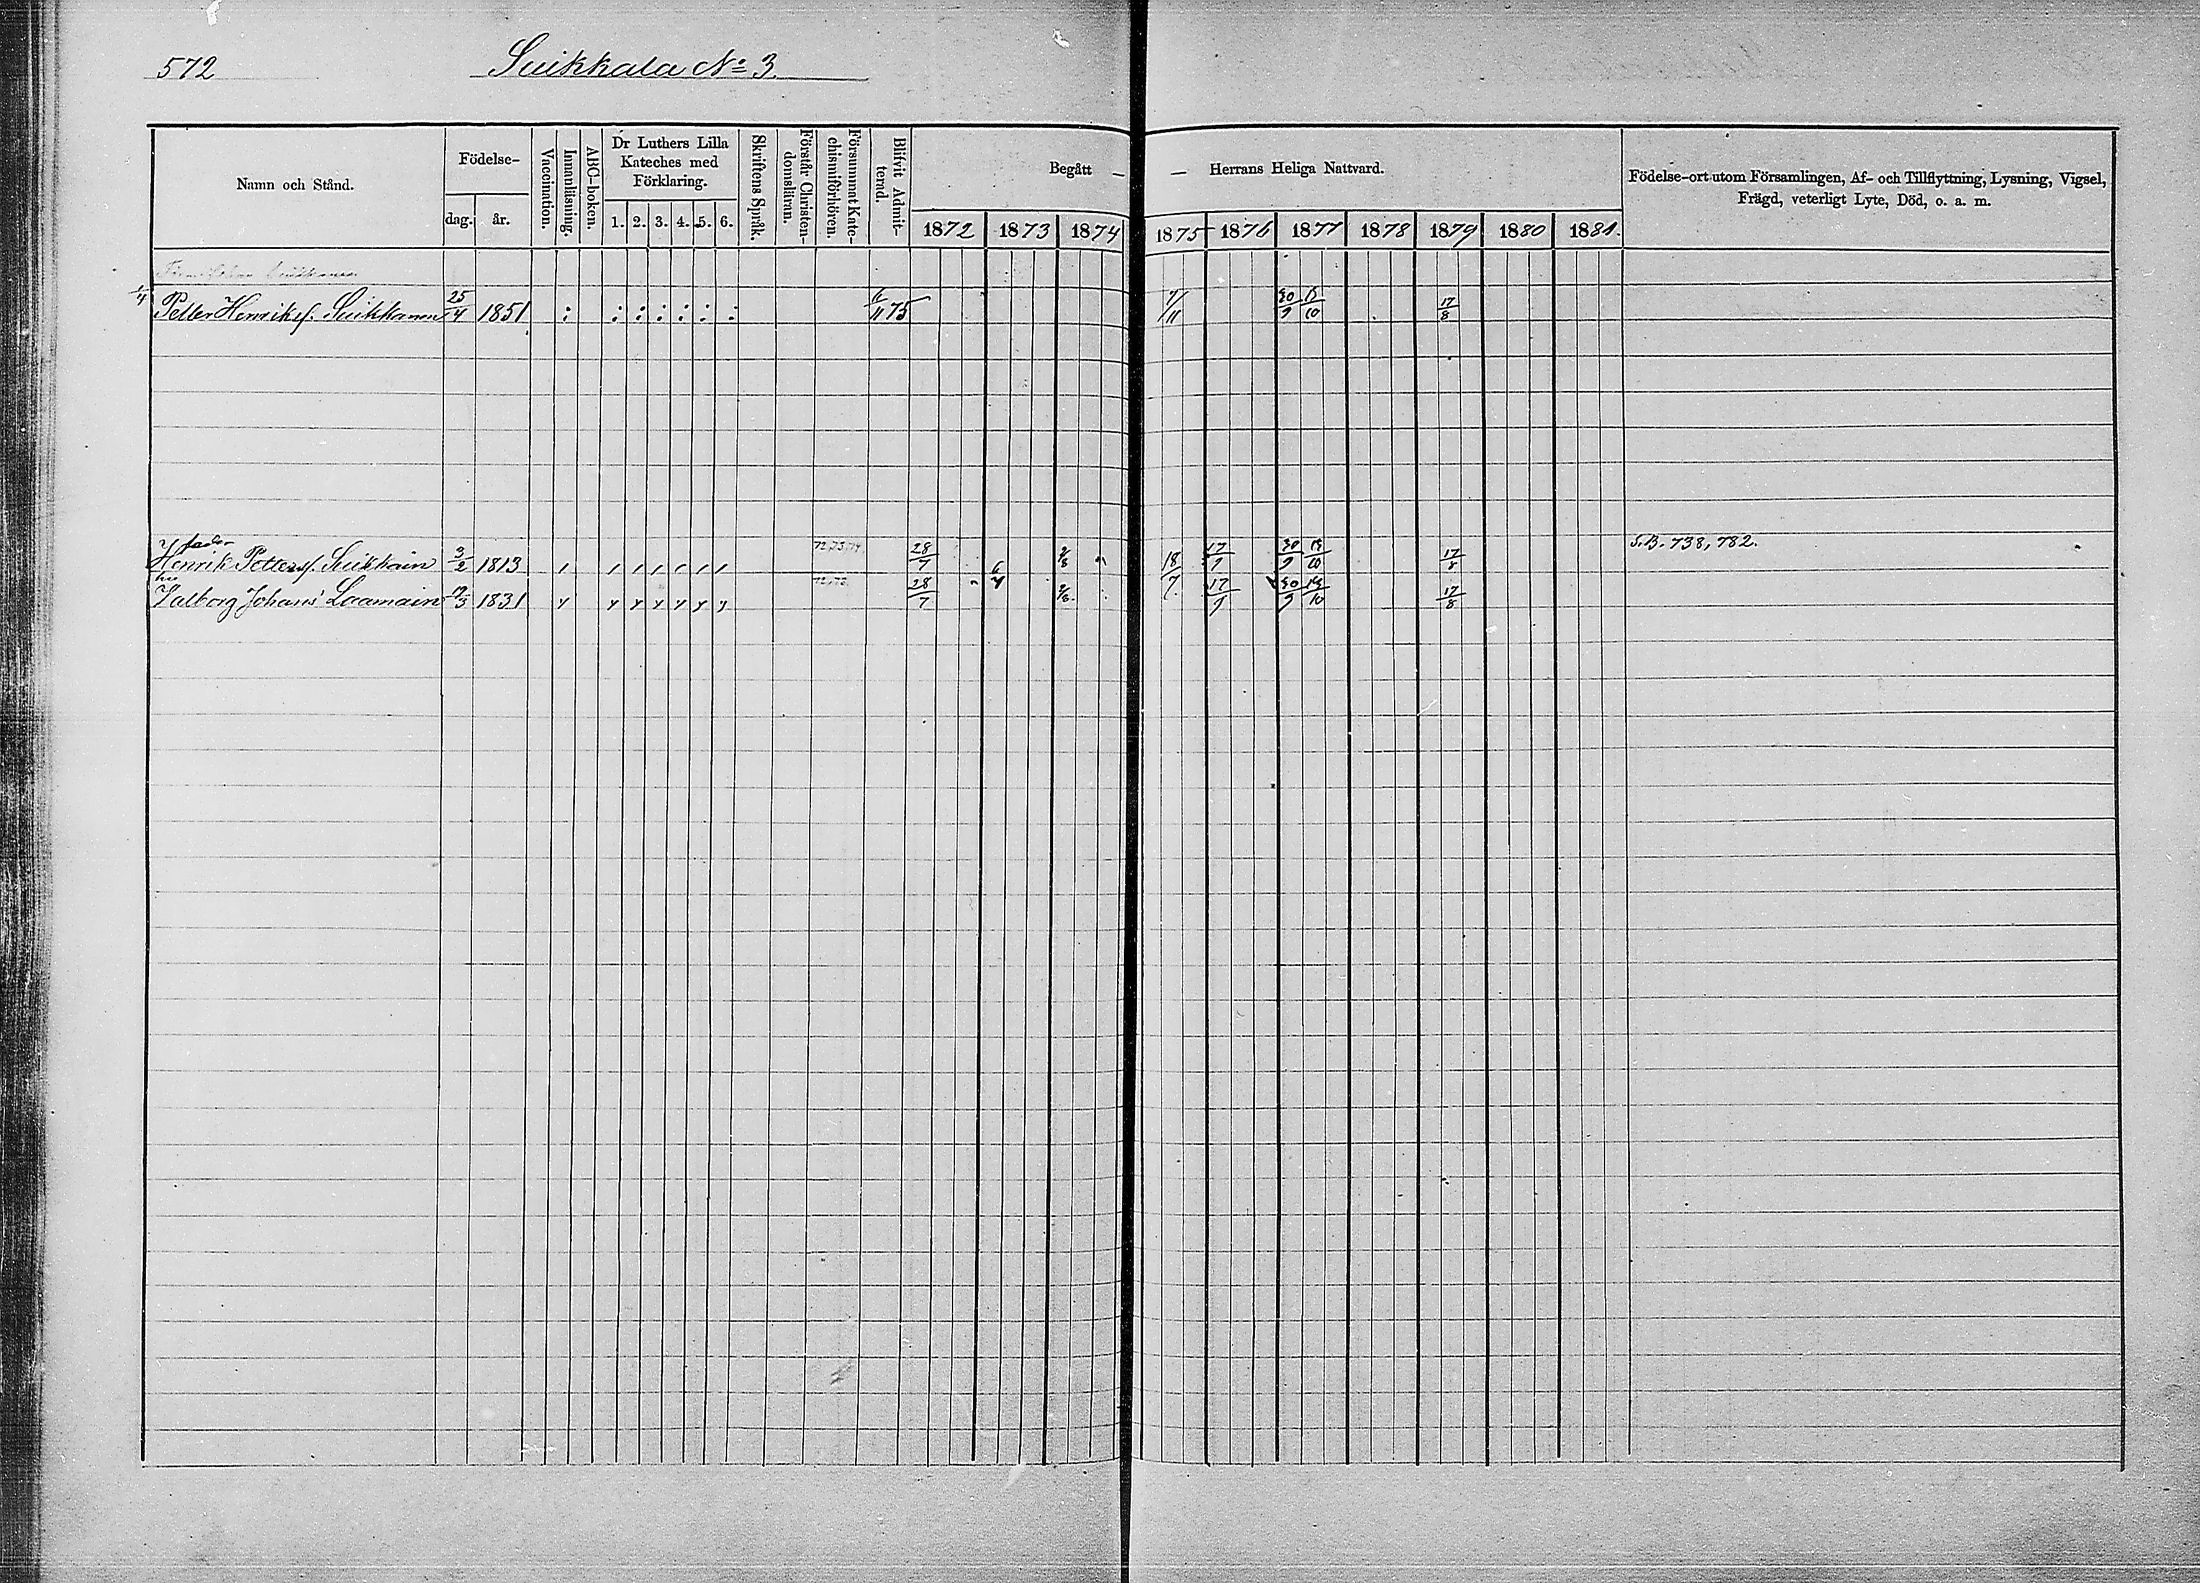 572 Suikkala No 3.
Namn och Stånd.
Födelse-
dag. år.
Vaccination.
Innanläsning.
ABC-boken.
Dr Luthers Lilla
Kateches med
Förklaring.
1. 2. 3. 4. 5. 6.
Skriftens Språk.
Förstår Christen-
domsläran.
Försummat Kate-
chismiförhören.
Blifvit Admit-
terad.
Begått — — Herrans Heliga Nattvard.
1872 1873 1874 1875 1876 1877 1878 1879 1880 1881.
Födelse-ort utom Församlingen, Af- och Tillflyttning, Lysning, Vigsel,
Frägd, veterligt Lyte, Död, o. a. m.
1/4 Petter Henriksf. Suikkanen 25/4 1851 : : : : : : : 6/11 75 7/11 30/9 17/8
fader
Henrik Pettersf. Suikkain 3/2 1813 72,73,74 28/7 18/7 17/9 30/9 17/8 S.B. 738, 782.
hu
Valborg Johans Laamain 1831 72,73. 28/7 17/9 30/9 17/8